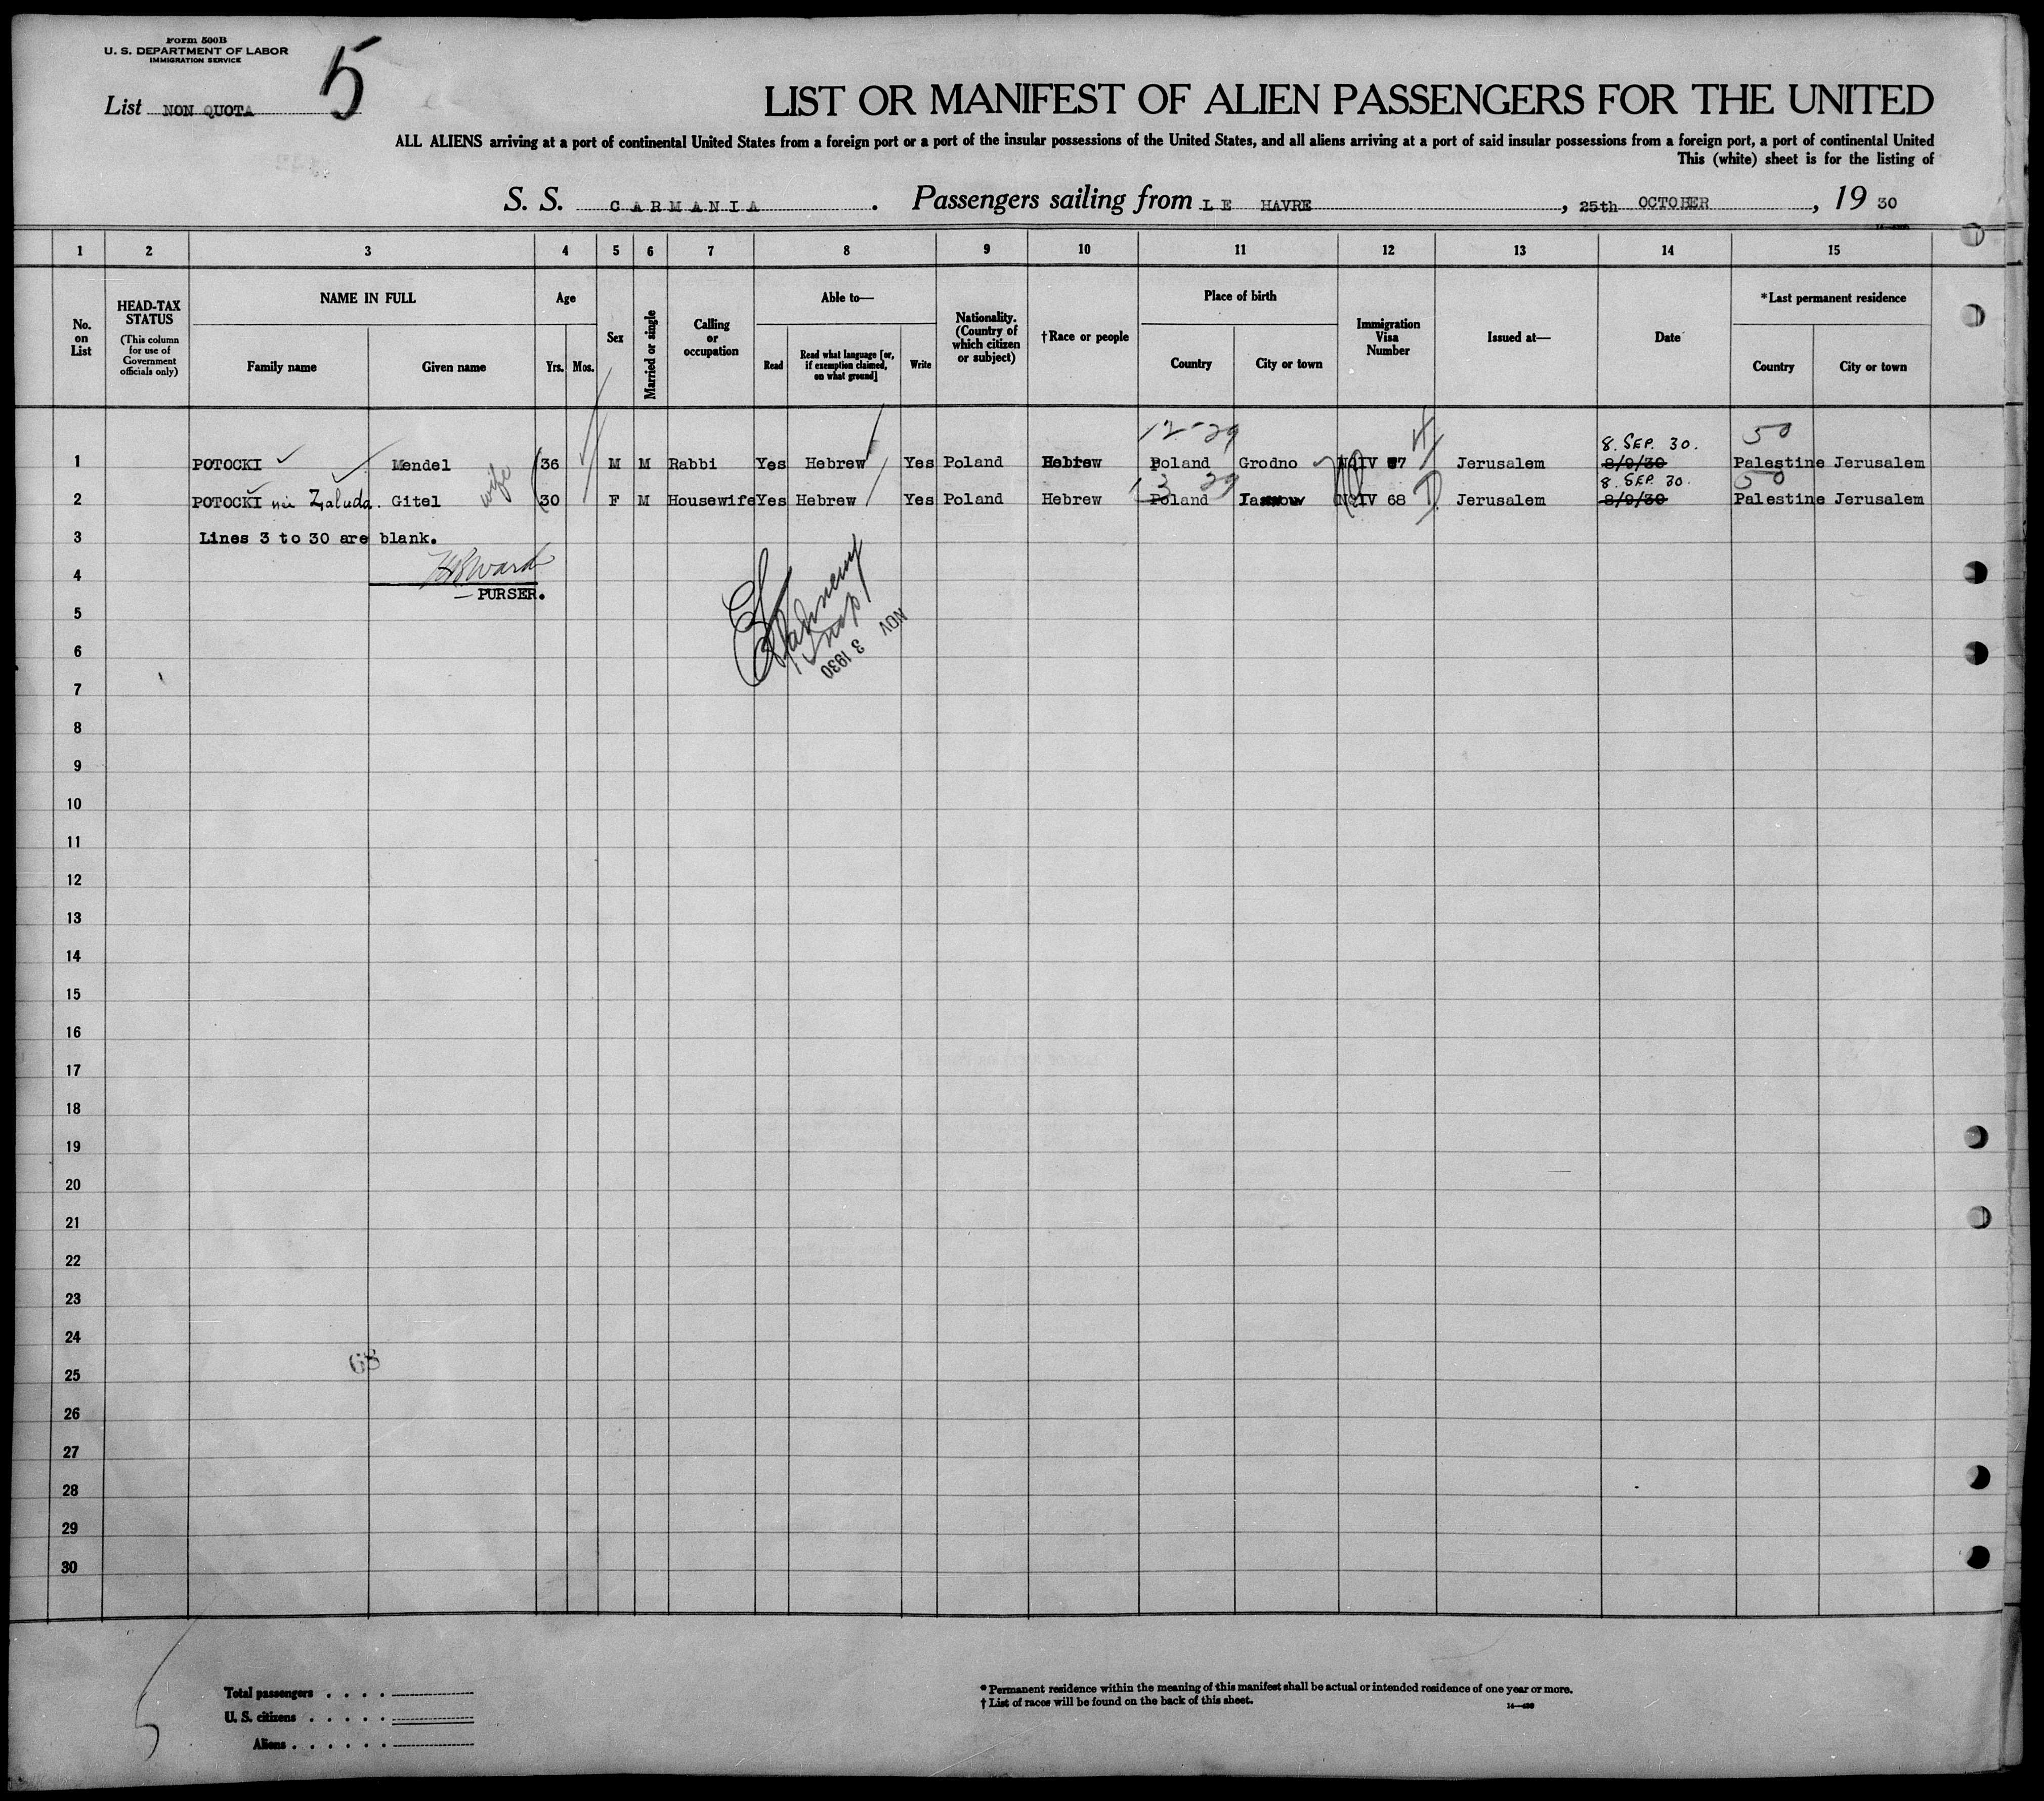 Form 500B
U. S. DEPARTMENT OF LABOR
IMMIGRATION SERVICE
5
List NON QUOTA
LIST OR MANIFEST OF ALIEN PASSENGERS FOR THE UNITED
ALL ALIENS arriving at a port of continental United States from a foreign port or a port of the insular possessions of the United States, and all aliens arriving at a port of said insular possessions from a foreign port, a port of continental United
This (white) sheet is for the listing of
S. S. CARMANIA. Passengers sailing from LE HAVRE, 25th OCTOBER, 19 30
1 2 3 4 5 6 7 8 9 10 11 12 13 14 15
No. on List
HEAD-TAX STATUS
(This column for use of Government officials only)
NAME IN FULL
Family name Given name
Age
Yrs. Mos.
Sex
Married or single
Calling or occupation
Able to—
Read Read what language [or, if exemption claimed, on what ground] Write
Nationality. (Country of which citizen or subject)
†Race or people
Place of birth
Country City or town
Immigration Visa Number
Issued at—
Date
*Last permanent residence
Country City or town
12-29 8. SEP. 30. 50
1 POTOCKI Mendel 36 M M Rabbi Yes Hebrew Yes Poland Hebrew Poland Grodno NQIV 67 Jerusalem 8/9/30 Palestine Jerusalem
wife 8. SEP. 30. 50
2 POTOCKI née Zaluda. Gitel 30 F M Housewife Yes Hebrew Yes Poland Hebrew Poland NQIV 68 Jerusalem 8/9/30 Palestine Jerusalem
3 Lines 3 to 30 are blank.
4
PURSER.
5
NOV 3 1930
6
7
8
9
10
11
12
13
14
15
16
17
18
19
20
21
22
23
24
68
25
26
27
28
29
30
Total passengers . . . .
U. S. citizens . . . . .
Aliens . . . . . .
* Permanent residence within the meaning of this manifest shall be actual or intended residence of one year or more.
† List of races will be found on the back of this sheet.